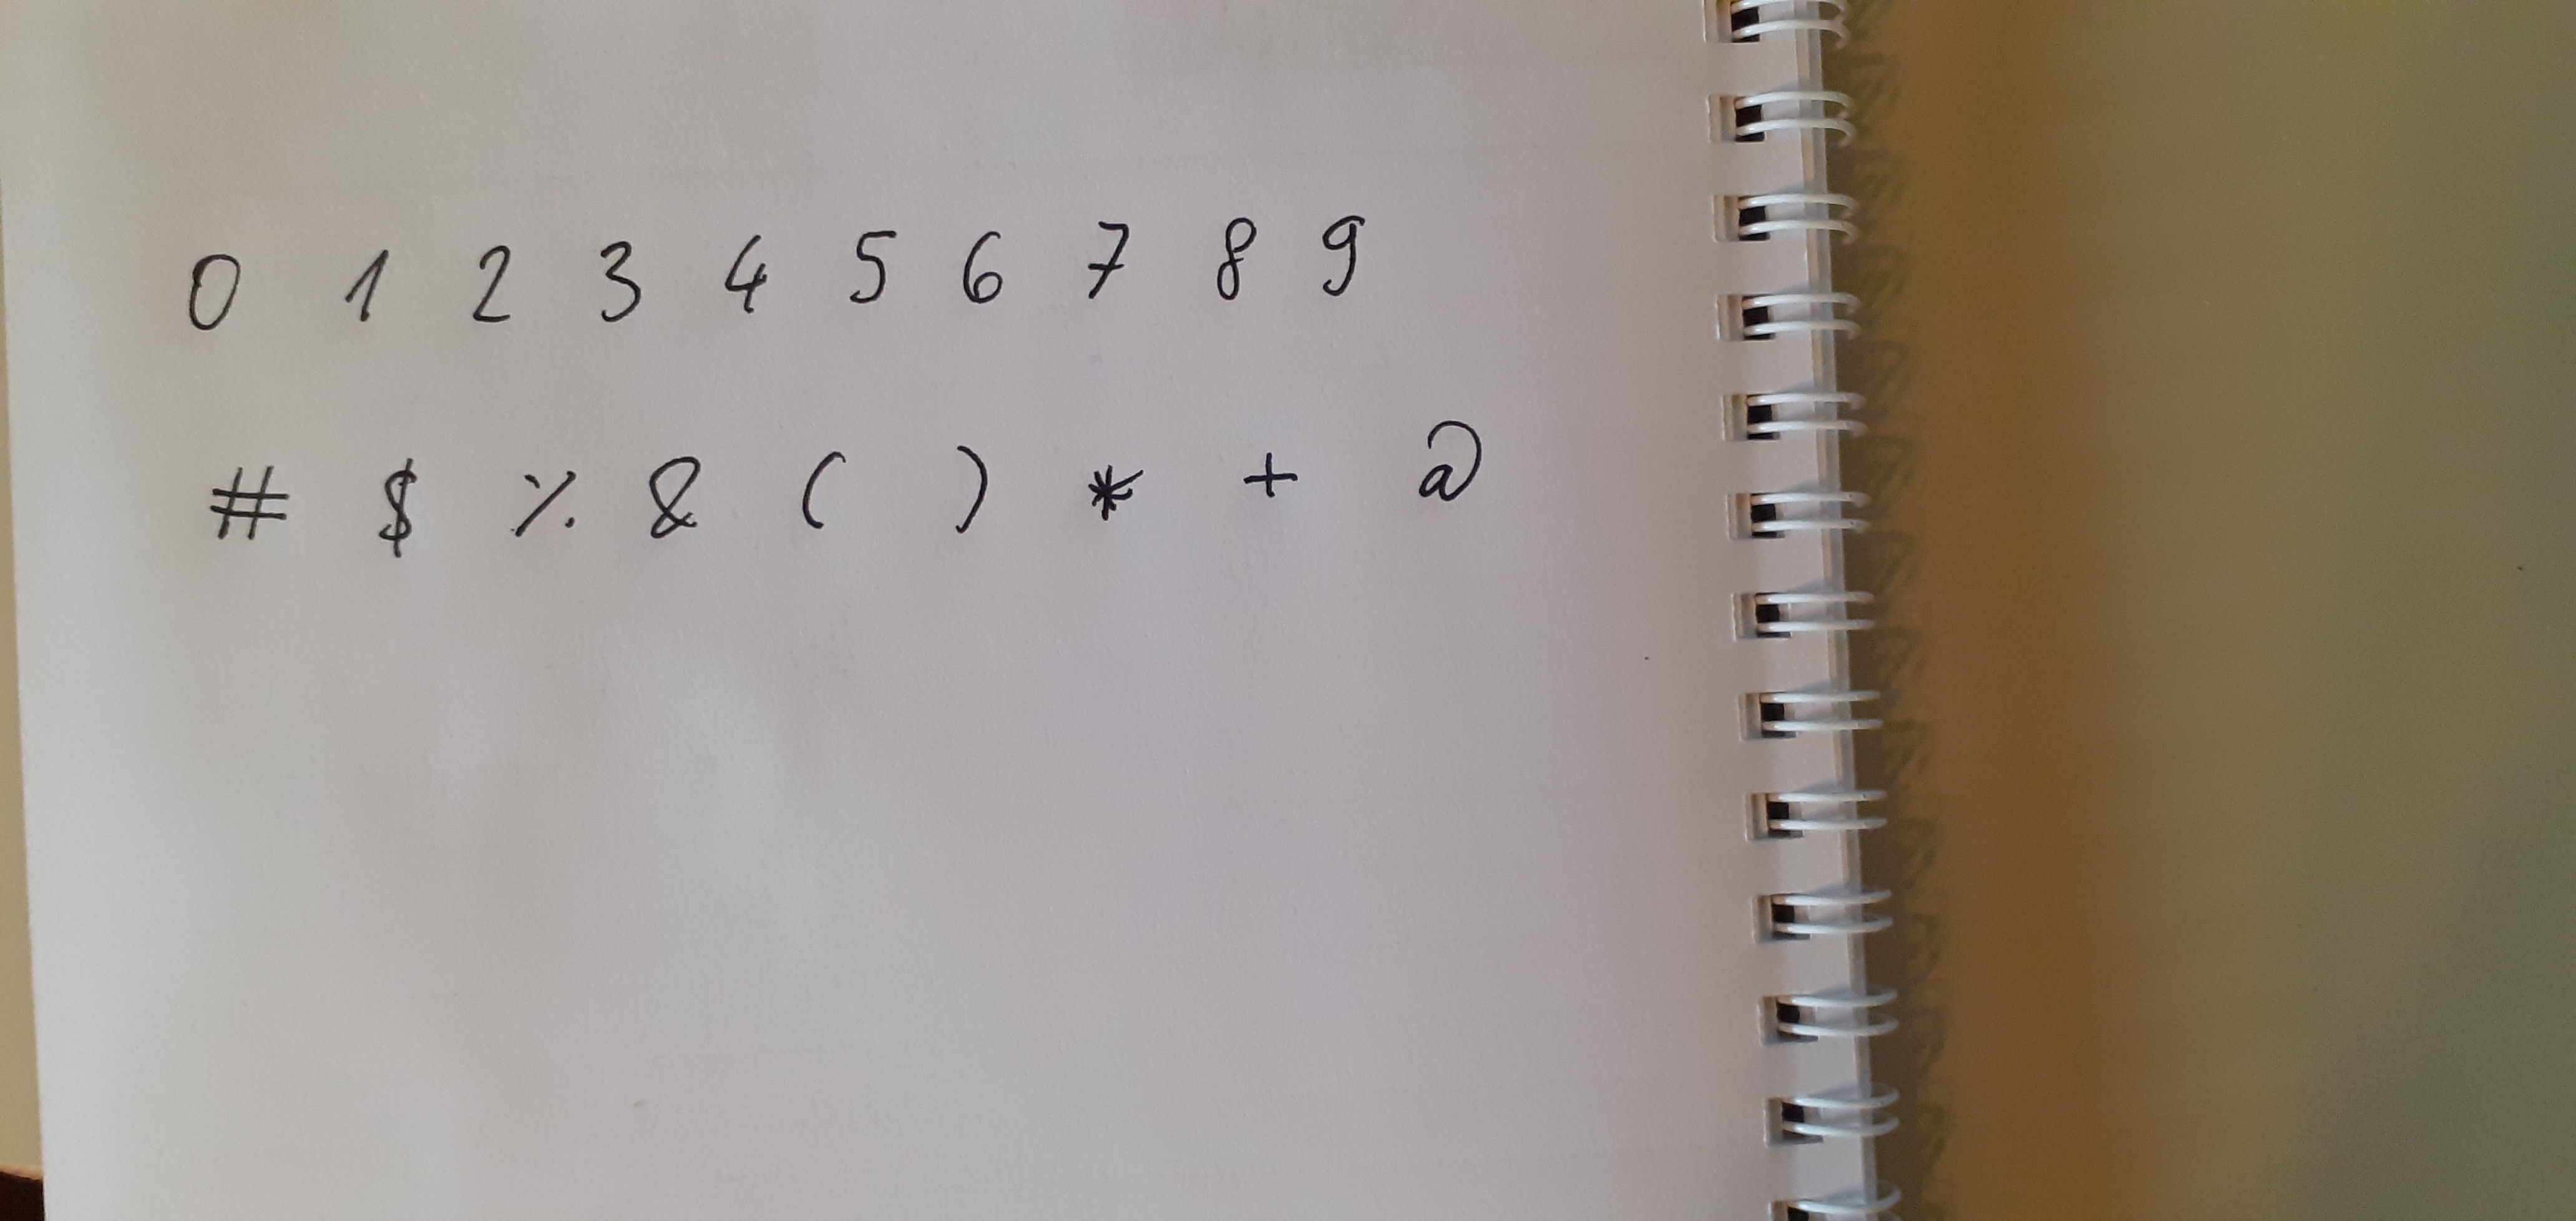 0 1 2 3 4 5 6 7 8 9
# $ % & ( ) * + @